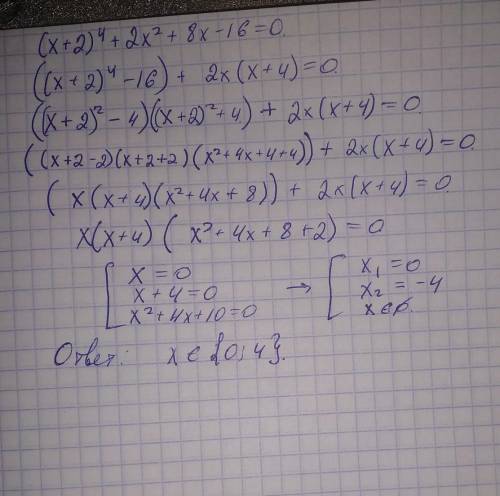 (x+2)⁴+2x²+8x-16=0.
((x+2)⁴-16)+2x(x+4)=0.
((x+2)²-4)((x+2)²+4)+2x(x+4)=0.
((x+2-2)(x+2+2)(x²+4x+4+4))+2x(x+4)=0.
(x(x+4)(x²+4x+8))+2x(x+4)=0
x(x+4)(x²+4x+8+2)=0
[x=0 → [x₁=0
x+4=0 x₂=-4
x²+4x+10=0 x∈∅.
Ответ: x∈{0;4}.